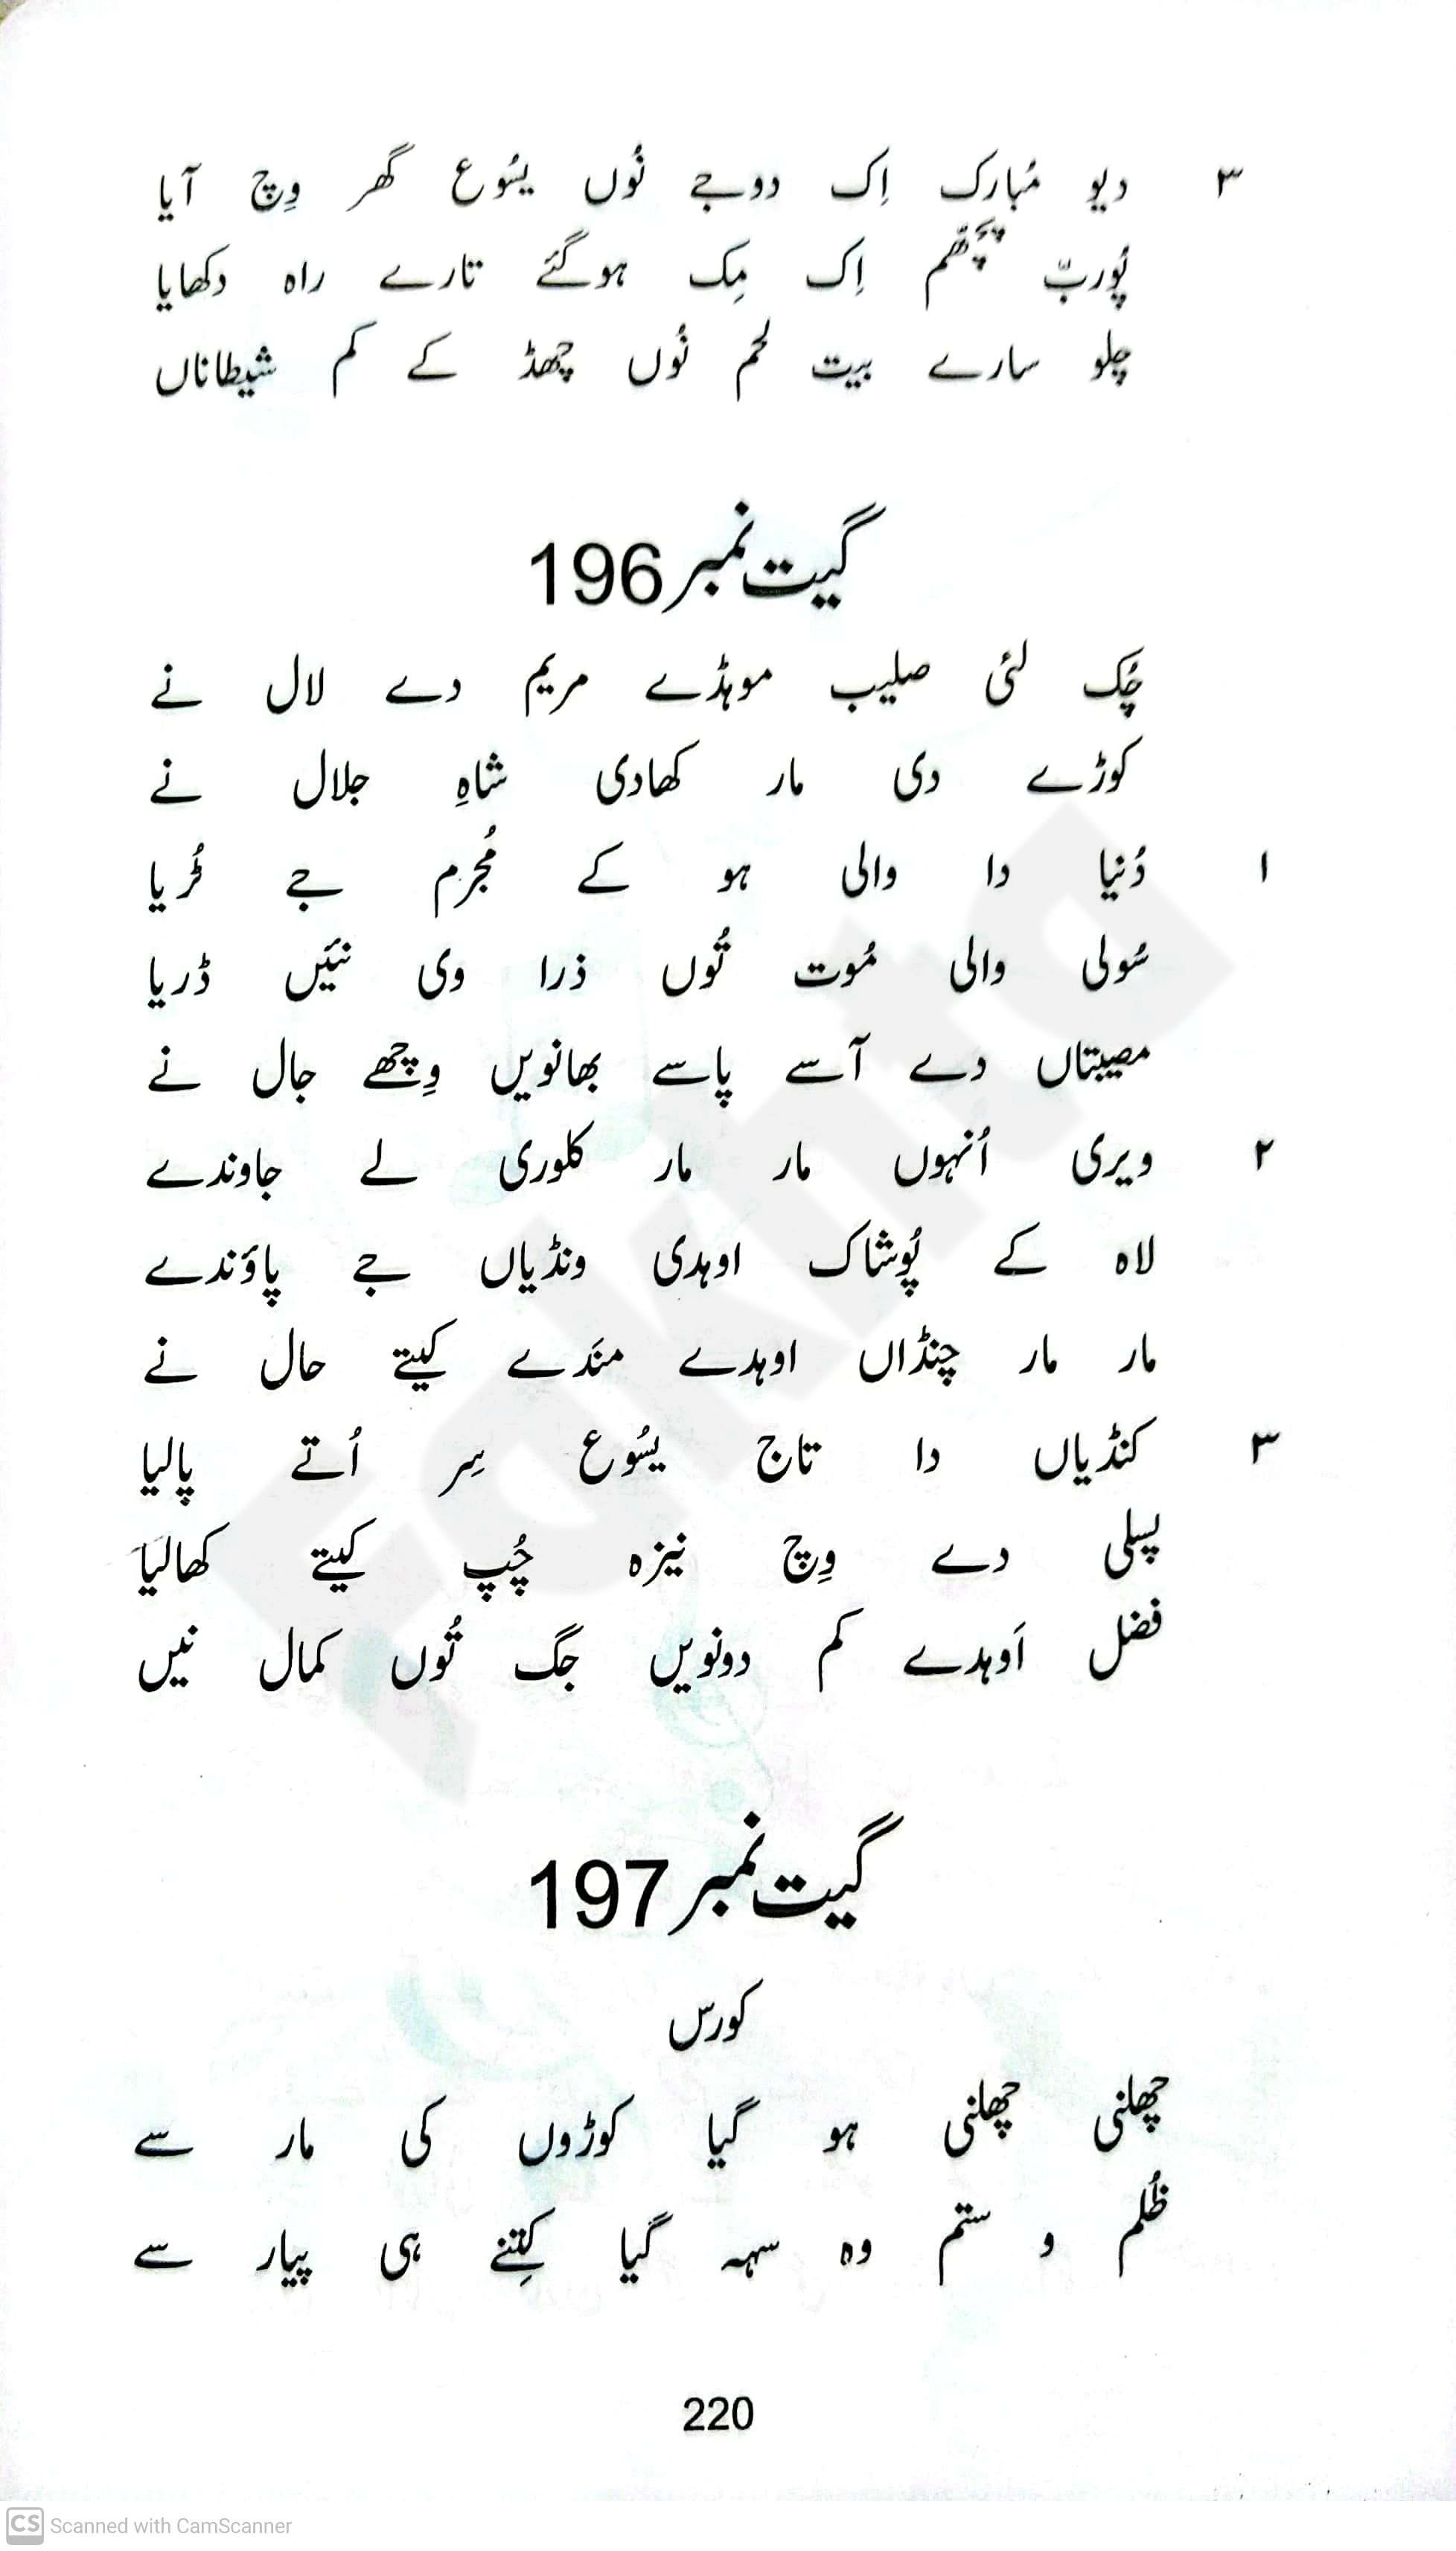 ۳ دیو مُبارک اِک دوجے نُوں یسُوع گھر وِچ آیا
پُوربّ پچھّم اِک مِک ہوگئے تارے راہ دکھایا
چلو سارے بیت لحم نُوں چھڈ کے کم شیطاناں
گیت نمبر 196
چُک لئی صلیب موہڈے مریم دے لال نے
کوڑے دی مار کھادی شاہِ جلال نے
۱ دُنیا دا والی ہو کے مُجرم جے ٹُریا
سُولی والی مُوت تُوں ذرا وی نئیں ڈریا
مصیبتاں دے آسے پاسے بھانویں وِچھے جال نے
۲ ویری اُنہوں مار مار کلوری لے جاوندے
لاہ کے پُوشاک اوہدی ونڈیاں جے پاؤندے
مار مار چنڈاں اوہدے مندَے کیتے حال نے
۳ کنڈیاں دا تاج یسُوع سِر اُتے پالیا
پسلی دے وِچ نیزہ چُپ کیتے کھالیا
فضل اَوہدے کم دونویں جگ تُوں کمال نیں
گیت نمبر 197
کورس
چھلنی چھلنی ہو گیا کوڑوں کی مار سے
ظُلم و ستم وہ سہہ گیا کِتنے ہی پیار سے
220
CS Scanned with CamScanner
Fakhta